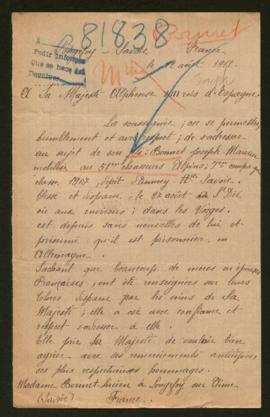 81838
Bonnet
Joseph
Savoie France
le 12 août 1915
A Sa Majesté Alphonse XIII roi d'Espagne
La soussignée ; ose se permettre,
humblement et avec respect ; de s'adresser
au sujet de son fils Bonnet Joseph Maurice
mobilisé au 51ème Chasseurs Alpins ; 7ème compagnie
classe 1907, dépôt d'Annecy Hte Savoie.
Blessé et disparu ; le 27 août à St Dié
ou aux environs ; dans les Vosges.
est depuis sans nouvelles de lui et
présume qu'il est prisonnier en
Allemagne.
Sachant que beaucoup de mères
Françaises ; ont été renseignées sur leurs
chers disparus par les soins de Sa
Majesté ; elle a osé avec confiance et
respect s'adresser à elle.
Elle prie Sa Majesté de vouloir bien
agréer, avec ses remerciements anticipés,
ses plus respectueux hommages.
Madame Bonnet Lucien à Longefoy sur Aime
(Savoie) France.